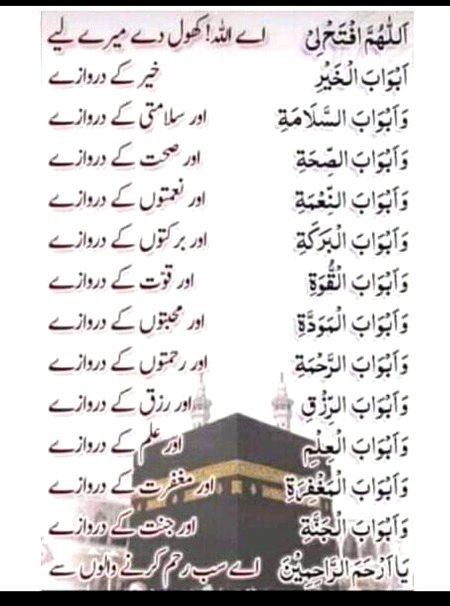 اَللّٰهُمَّ افْتَحْ لِيْ اے اللہ! کھول دے میرے لیے
اَبْوَابَ الْخَيْرِ خیر کے دروازے
وَاَبْوَابَ السَّلَامَةِ اور سلامتی کے دروازے
وَاَبْوَابَ الصِّحَةِ اور صحت کے دروازے
وَاَبْوَابَ النِّعْمَةِ اور نعمتوں کے دروازے
وَاَبْوَابَ الْبَرَكَةِ اور برکتوں کے دروازے
وَاَبْوَابَ الْقُوَّةِ اور قوّت کے دروازے
وَاَبْوَابَ الْمَوَدَّةِ اور محبتوں کے دروازے
وَاَبْوَابَ الرَّحْمَةِ اور رحمتوں کے دروازے
وَاَبْوَابَ الرِّزْقِ اور رزق کے دروازے
وَاَبْوَابَ الْعِلْمِ اور علم کے دروازے
وَاَبْوَابَ الْمَغْفِرَةِ اور مغفرت کے دروازے
وَاَبْوَابَ الْجَنَّةِ اور جنّت کے دروازے
يَا اَرْحَمَ الرَّاحِمِيْنَ اے سب رحم کرنے والوں سے